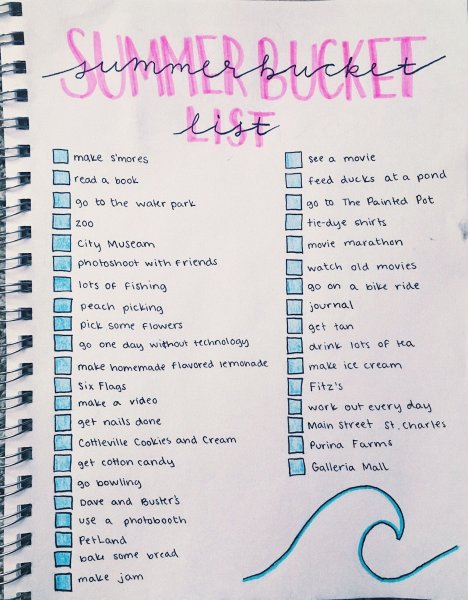 SUMMER BUCKET
summer bucket
LIST
list
make s'mores
read a book
go to the water park
zoo
City Museam
photoshoot with friends
lots of fishing
peach picking
pick some flowers
go one day without technology
make homemade flavored lemonade
Six Flags
make a video
get nails done
Cottleville Cookies and Cream
get cotton candy
go bowling
Dave and Buster's
use a photobooth
PetLand
bake some bread
make jam
see a movie
feed ducks at a pond
go to The Painted Pot
tie-dye shirts
movie marathon
watch old movies
go on a bike ride
journal
get tan
drink lots of tea
make ice cream
Fitz's
work out every day
Main Street St. Charles
Purina Farms
Galleria Mall